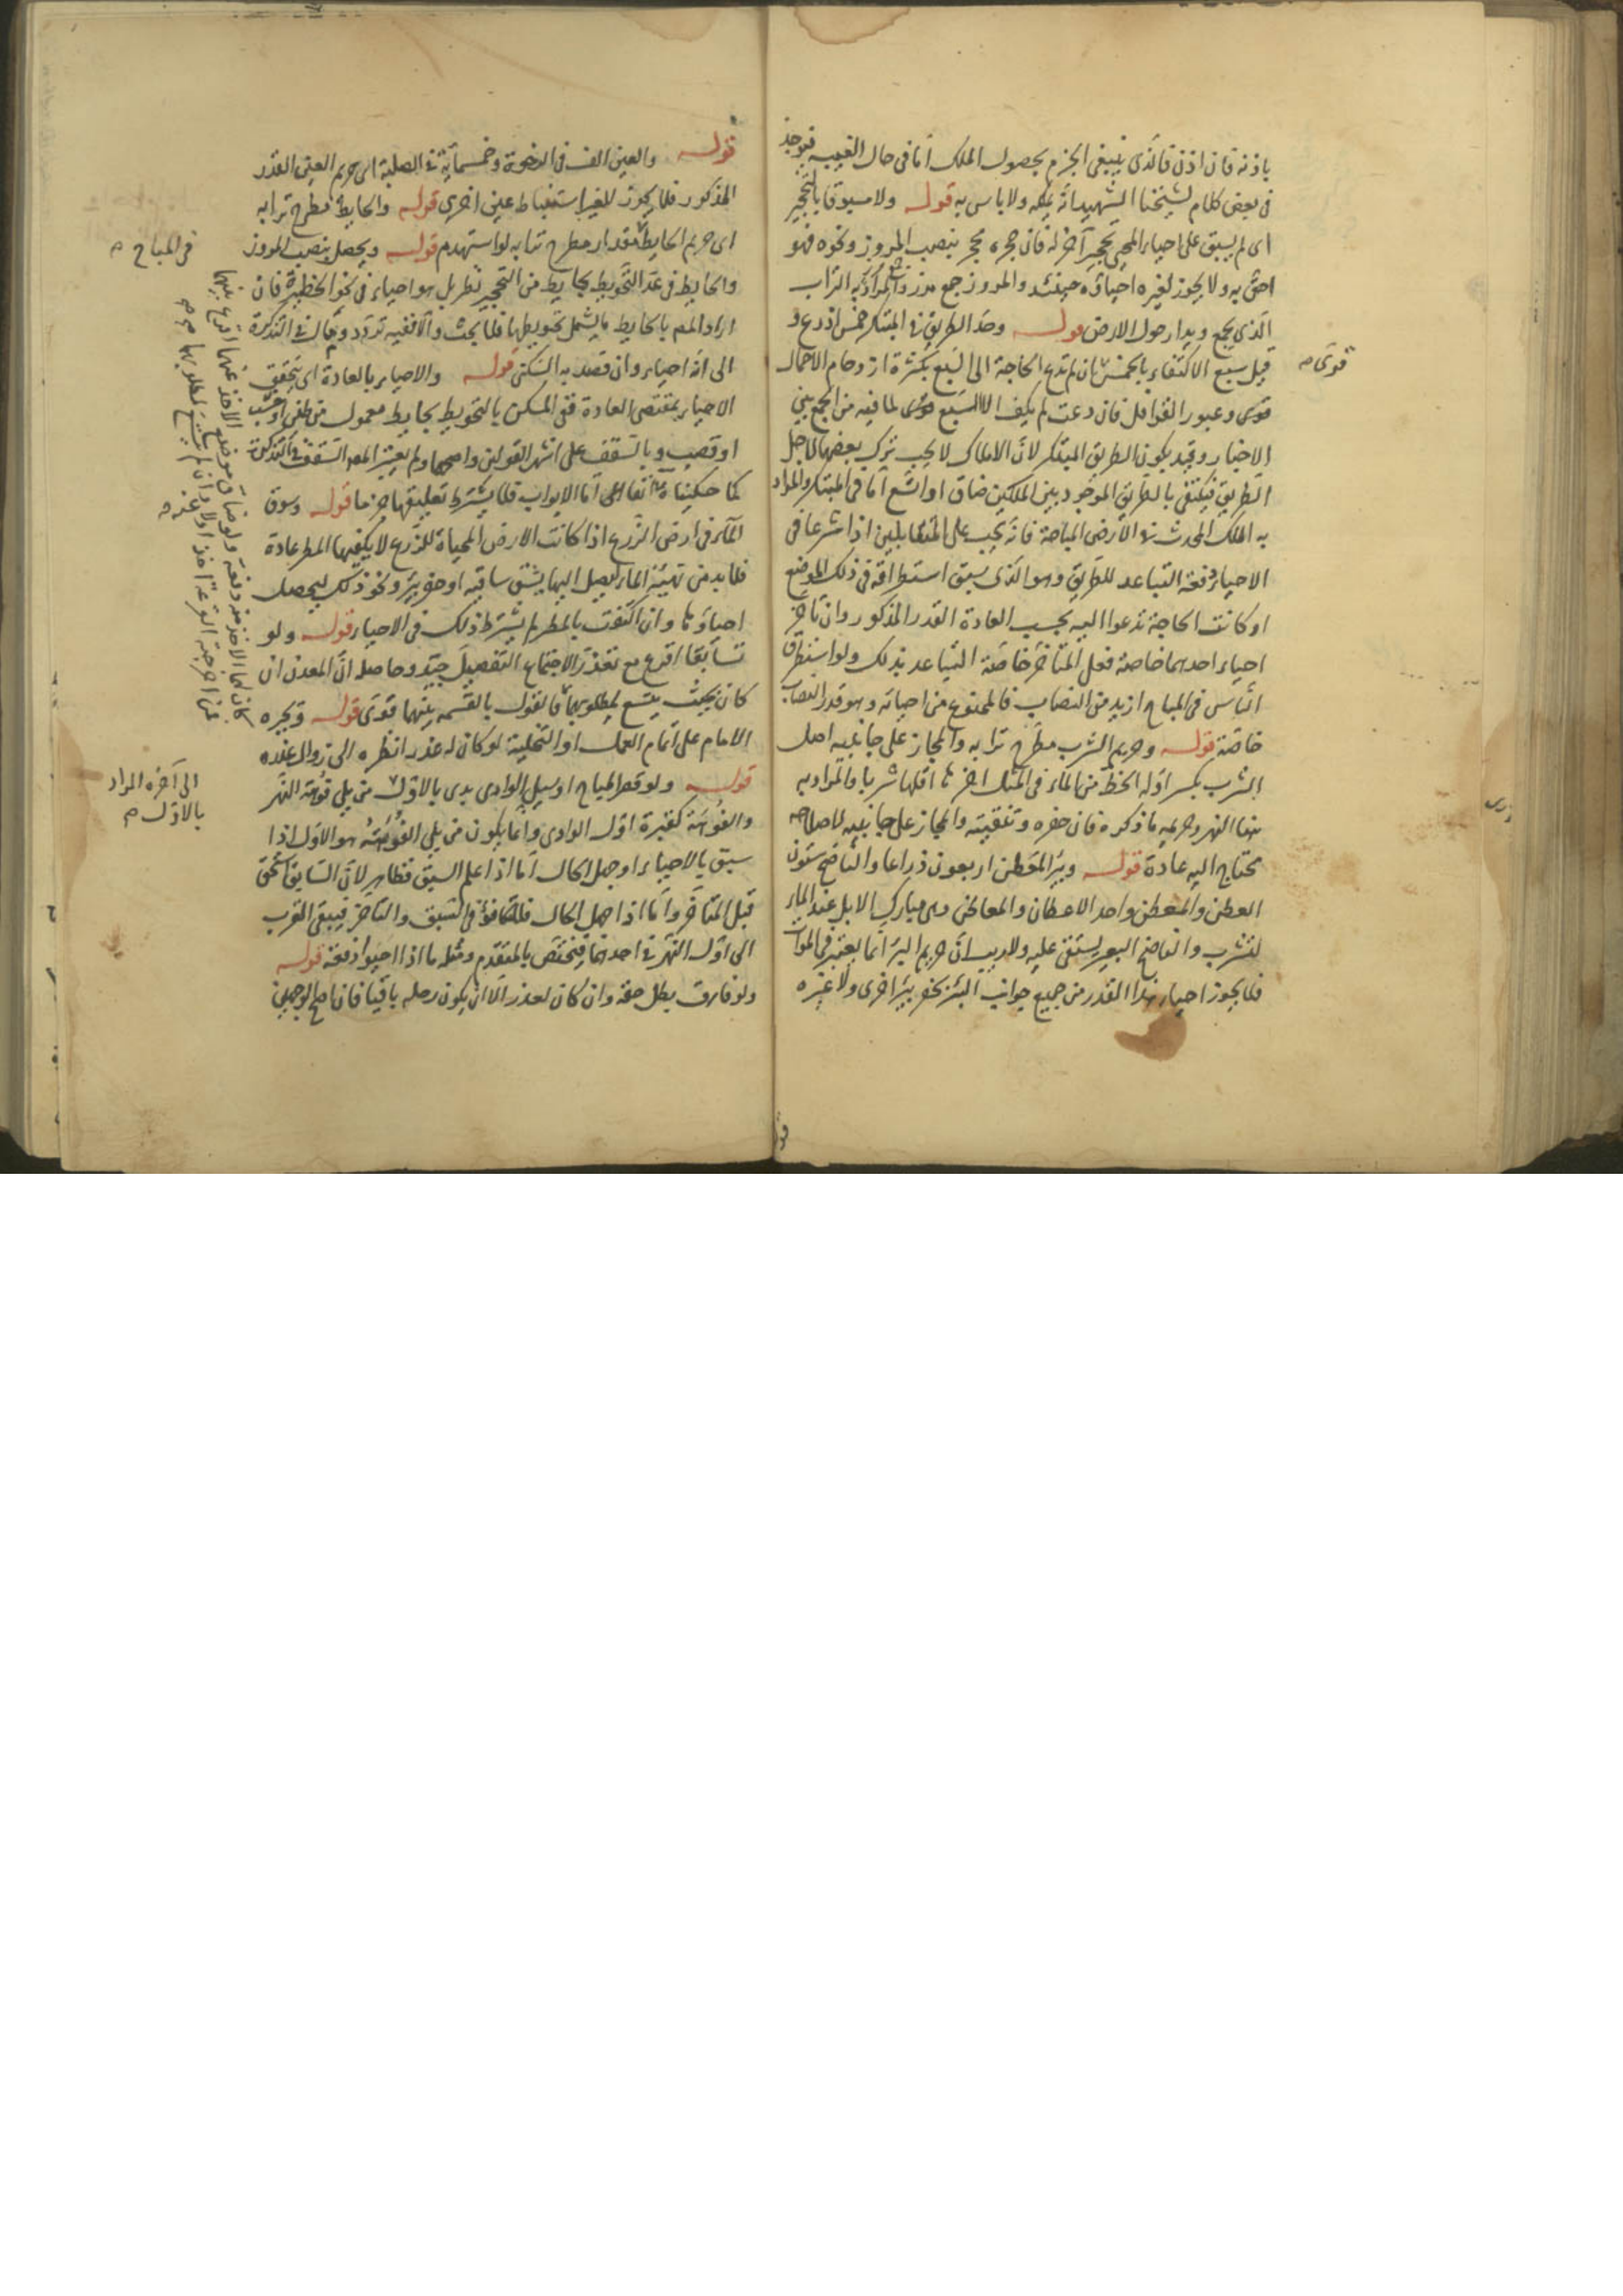 باذنه فان اذن فالذى ينبغى الجزم بحصول الملك اما فى حال الغيبه فيوجد
فى بعض كلام لشيخنا الشهيد انه يملكه ولا باس به قوله ولا مسبوقا بالتحجير
اى لم يسبق على احياء المحيى تحجير آخر له فان حجره محجر بنصب المروز ونحوه فهو
احق به ولا يجوز لغيره احياؤه حينئذ والمروز جمع مرز والمراد به التراب
الذى يجمع ويدار حول الارض قوله وحد الطريق فى المبتكر خمس اذرع و
قيل سبع الاكتفاء بالخمس ان لم تدع الحاجة الى السبع بكثرة ازدحام الاحمال
قوى وعبور القوافل فان دعت لم يكف الا السبع قوى لما فيه من الجمع بين
الاخبار وقيد بكون الطريق المبتكر لان الاملاك لا يجب ترك بعضها لاجل
الطريق فيكتفى بالطريق الموجود بين الملكين ضاق او اتسع اما فى المبتكر والمراد
به الملك المحدث فى الارض المباحة فانه يجب على المتقابلين اذا شرعا فى
الاحياء دفعة التباعد للطريق وهو الذى سبق استطراقه فى ذلك الموضع
او كانت الحاجة تدعوا اليه بحسب العادة القدر المذكور وان تاخر
احياء احدهما خاصة فعلى المتاخر خاصة التباعد بذلك ولو استطرق
الناس فى المباح ازيد من النصاب فالممنوع من احيائه وهو قدر النصاب
خاصة قوله وحريم الشرب مطرح ترابه والمجاز على جانبيه اصل
الشرب بكسر اوله الحظ من الماء فى المثل اخرها اقلها شربا والمراد به
هنا النهر وحريمه ما ذكره فان حفره وتنقيته والمجاز على جانبيه لاصلاحه
محتاج اليه عادة قوله وبئر المعطن اربعون ذراعا والناضح ستون
العطن والمعطن واحد الاعطان والمعاطن وهى مبارك الابل عند الماء
لتشرب والناضح البعير يستقى عليه ولا ريب ان حريم البئر انما يعتبر فى الموات
فلا يجوز احياء هذا القدر من جميع جوانب البئر بحفر بئر اخرى ولا غيره
قوى صح
قوله والعين الف فى الرخوة وخمسمائة فى الصلبة اى حريم العين القدر
المذكور فلا يجوز للغير استنباط عين اخرى قوله والحايط مطرح ترابه
اى حريم الحايط مقدار مطرح ترابه لو استهدم قوله ويحصل بنصب المروز
والحايط فى عد التحويط بحايط من التحجير نظر بل هو احياء فى نحو الحظيرة فان
اراد المص بالحايط ما يشمل تحويطها فلا بحث والا ففيه تردد ومال فى التذكرة
الى انه احياء وان قصد به السكنى قوله والاحياء بالعادة اى يتحقق
الاحياء بمقتضى العادة ففى المسكن بالتحويط بحايط معمول من طين او خشب
او قصب وبالسقف على اشهر القولين واصحهما ولم يعتبر المص السقف فى التذكرة
كما حكيناه عنه آنفا اما الابواب فلا يشترط تعليقها جزما قوله وسوق
الماء فى ارض الزرع اذا كانت الارض المحياة للزرع لا يكفيها المطر عادة
فلا بد من تهيئة الماء ليصل اليها بشق ساقيه او حفر بئر ونحو ذلك ليحصل
احياؤها وان اكتفت بالمطر لم يشترط ذلك فى الاحياء قوله ولو
تسابقا اقرع مع تعذر الاجتماع التفصيل جيد وحاصله ان المعدن ان
كان بحيث يتسع لمطلوبهما فالقول بالقسمه بينهما قوى قوله ويجبره
الامام على اتمام العمل او التخلية لو كان له عذر انظره الى زوال عذره
قوله ولو قصر المباح او سيل الوادى بدى بالاول من يلى فوهة النهر
والفوهة كقبرة اول الوادى وانما يكون من يلى الفوهة هو الاول اذا
سبق بالاحياء او جهل الحال اما اذا علم السبق فظاهر لان السابق استحق
قبل المتاخر واما اذا جهل الحال فلتكافؤ فى السبق والتاخر فيبقى القرب
الى اول النهر فى احدهما فيختص بالمتقدم ومثله ما اذا احيوا دفعة قوله
ولو فارق بطل حقه وان كان لعذر الا ان يكون رحله باقيا فان اصح الوجهين
فى المباح صح
كان لهما الاخذ منه دفعة ولو ضاق موضع الاخذ عنهما اقرع بينهما
فمن اخرجته القرعة اخذ اولا وان لم يتسع لمطلوبهما
الى آخره المراد
بالاول صح